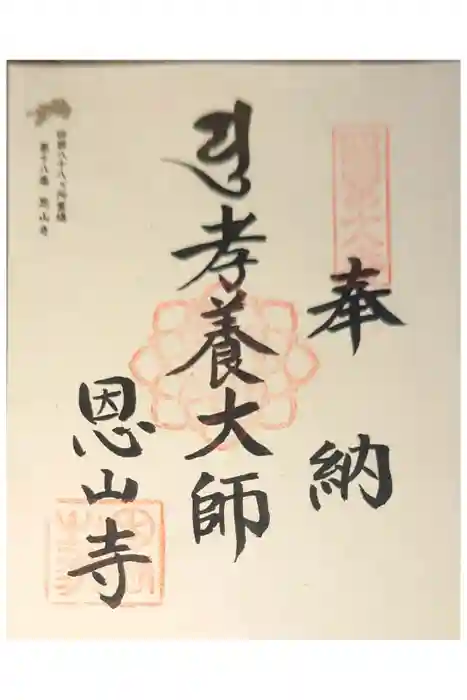 奉納
孝養大師
恩山寺
四国八十八ヶ所霊場
第十八番 恩山寺